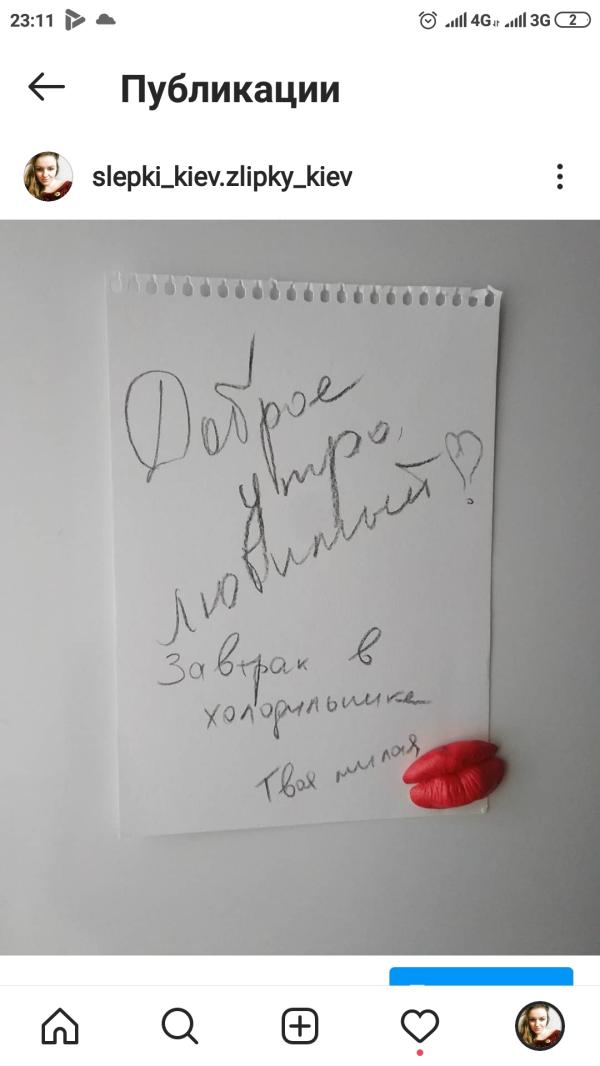 23:11 4G 3G 2
Публикации
slepki_kiev.zlipky_kiev
Доброе
утро,
любимый
Завтрак в
холодильнике
Твоя милая